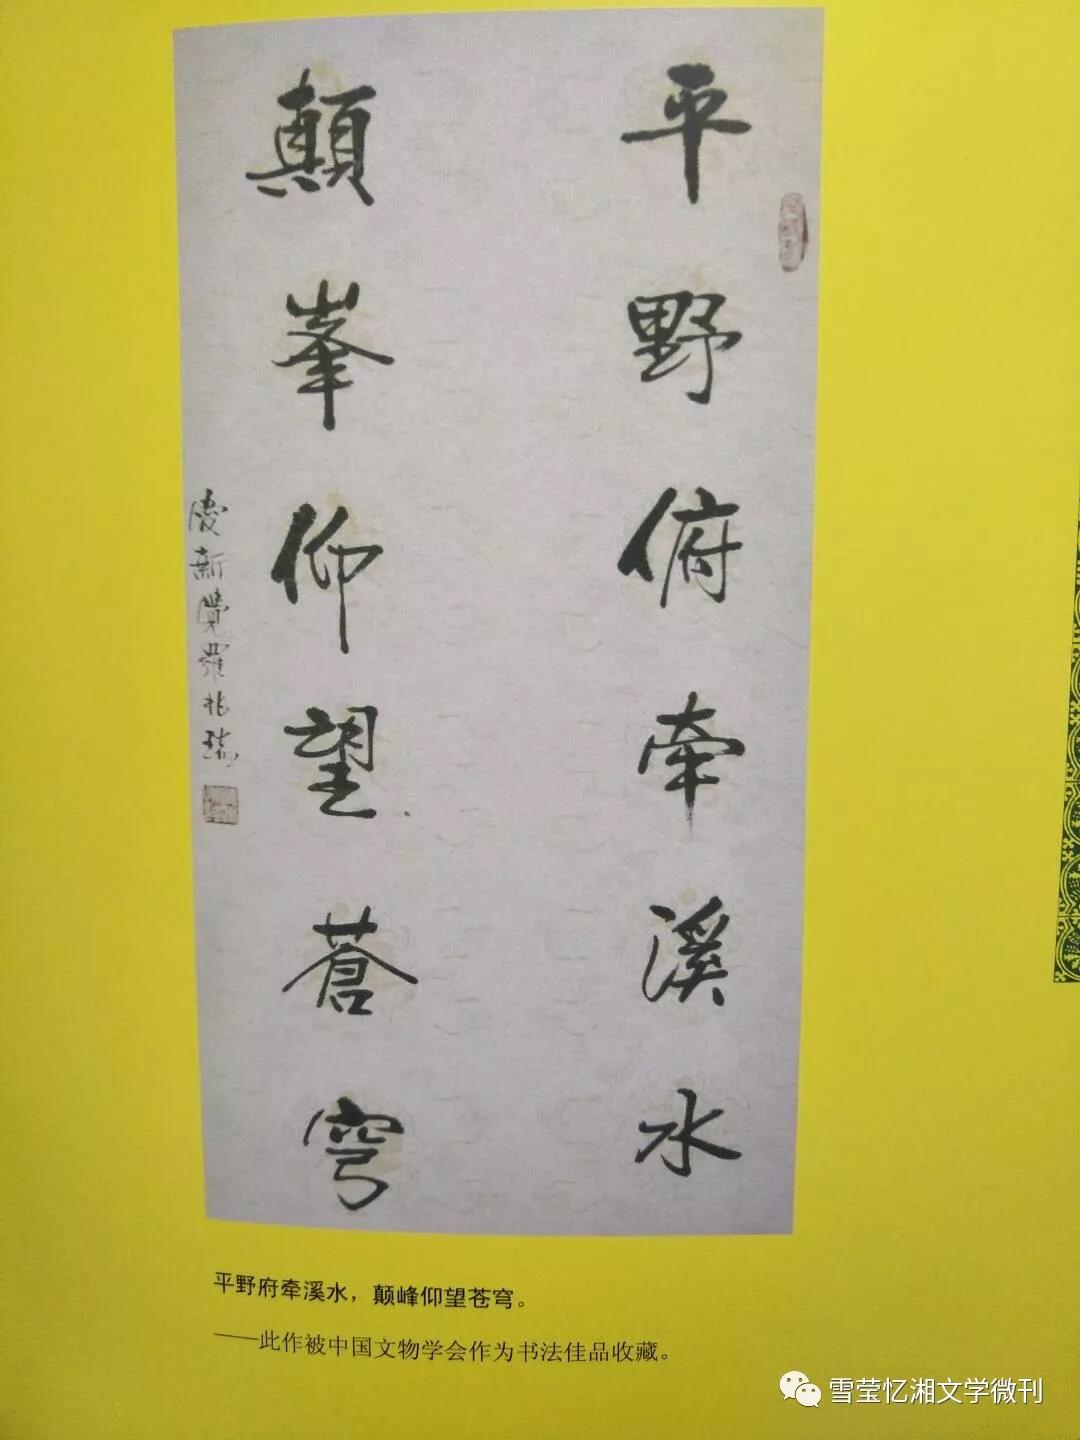 平野俯牵溪水
顛峯仰望蒼穹
愛新覺羅兆瑞
平野府牵溪水，颠峰仰望苍穹。
——此作被中国文物学会作为书法佳品收藏。
雪莹忆湘文学微刊